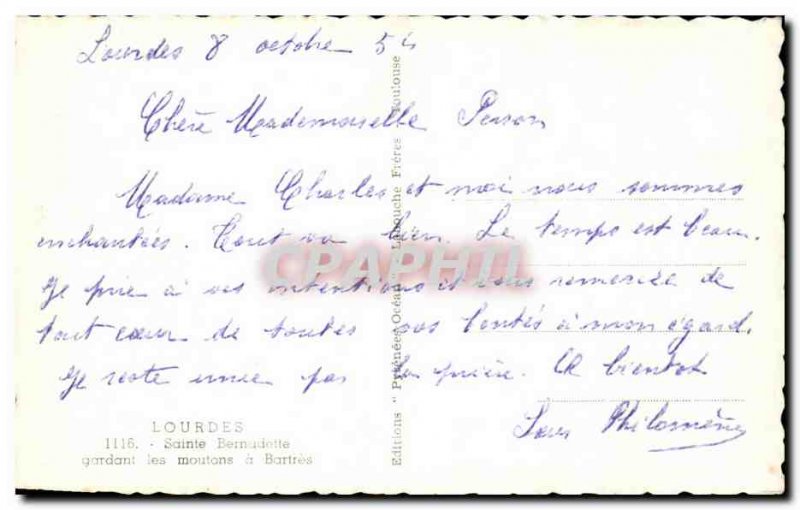 Lourdes 8 octobre 54
Chère Mademoiselle Person
Madame Charles et moi nous sommes
enchantées. Tout va bien. Le temps est beau.
Je prie à vos intentions et vous remercie de
tout cœur de toutes vos bontés à mon égard.
Je reste unie par la prière. A bientôt
Sœur Philomène
LOURDES
1116. - Sainte Bernadette
gardant les moutons à Bartrès
Editions "Pyrénées Océan" Labouche Frères Toulouse
CRAPHTL